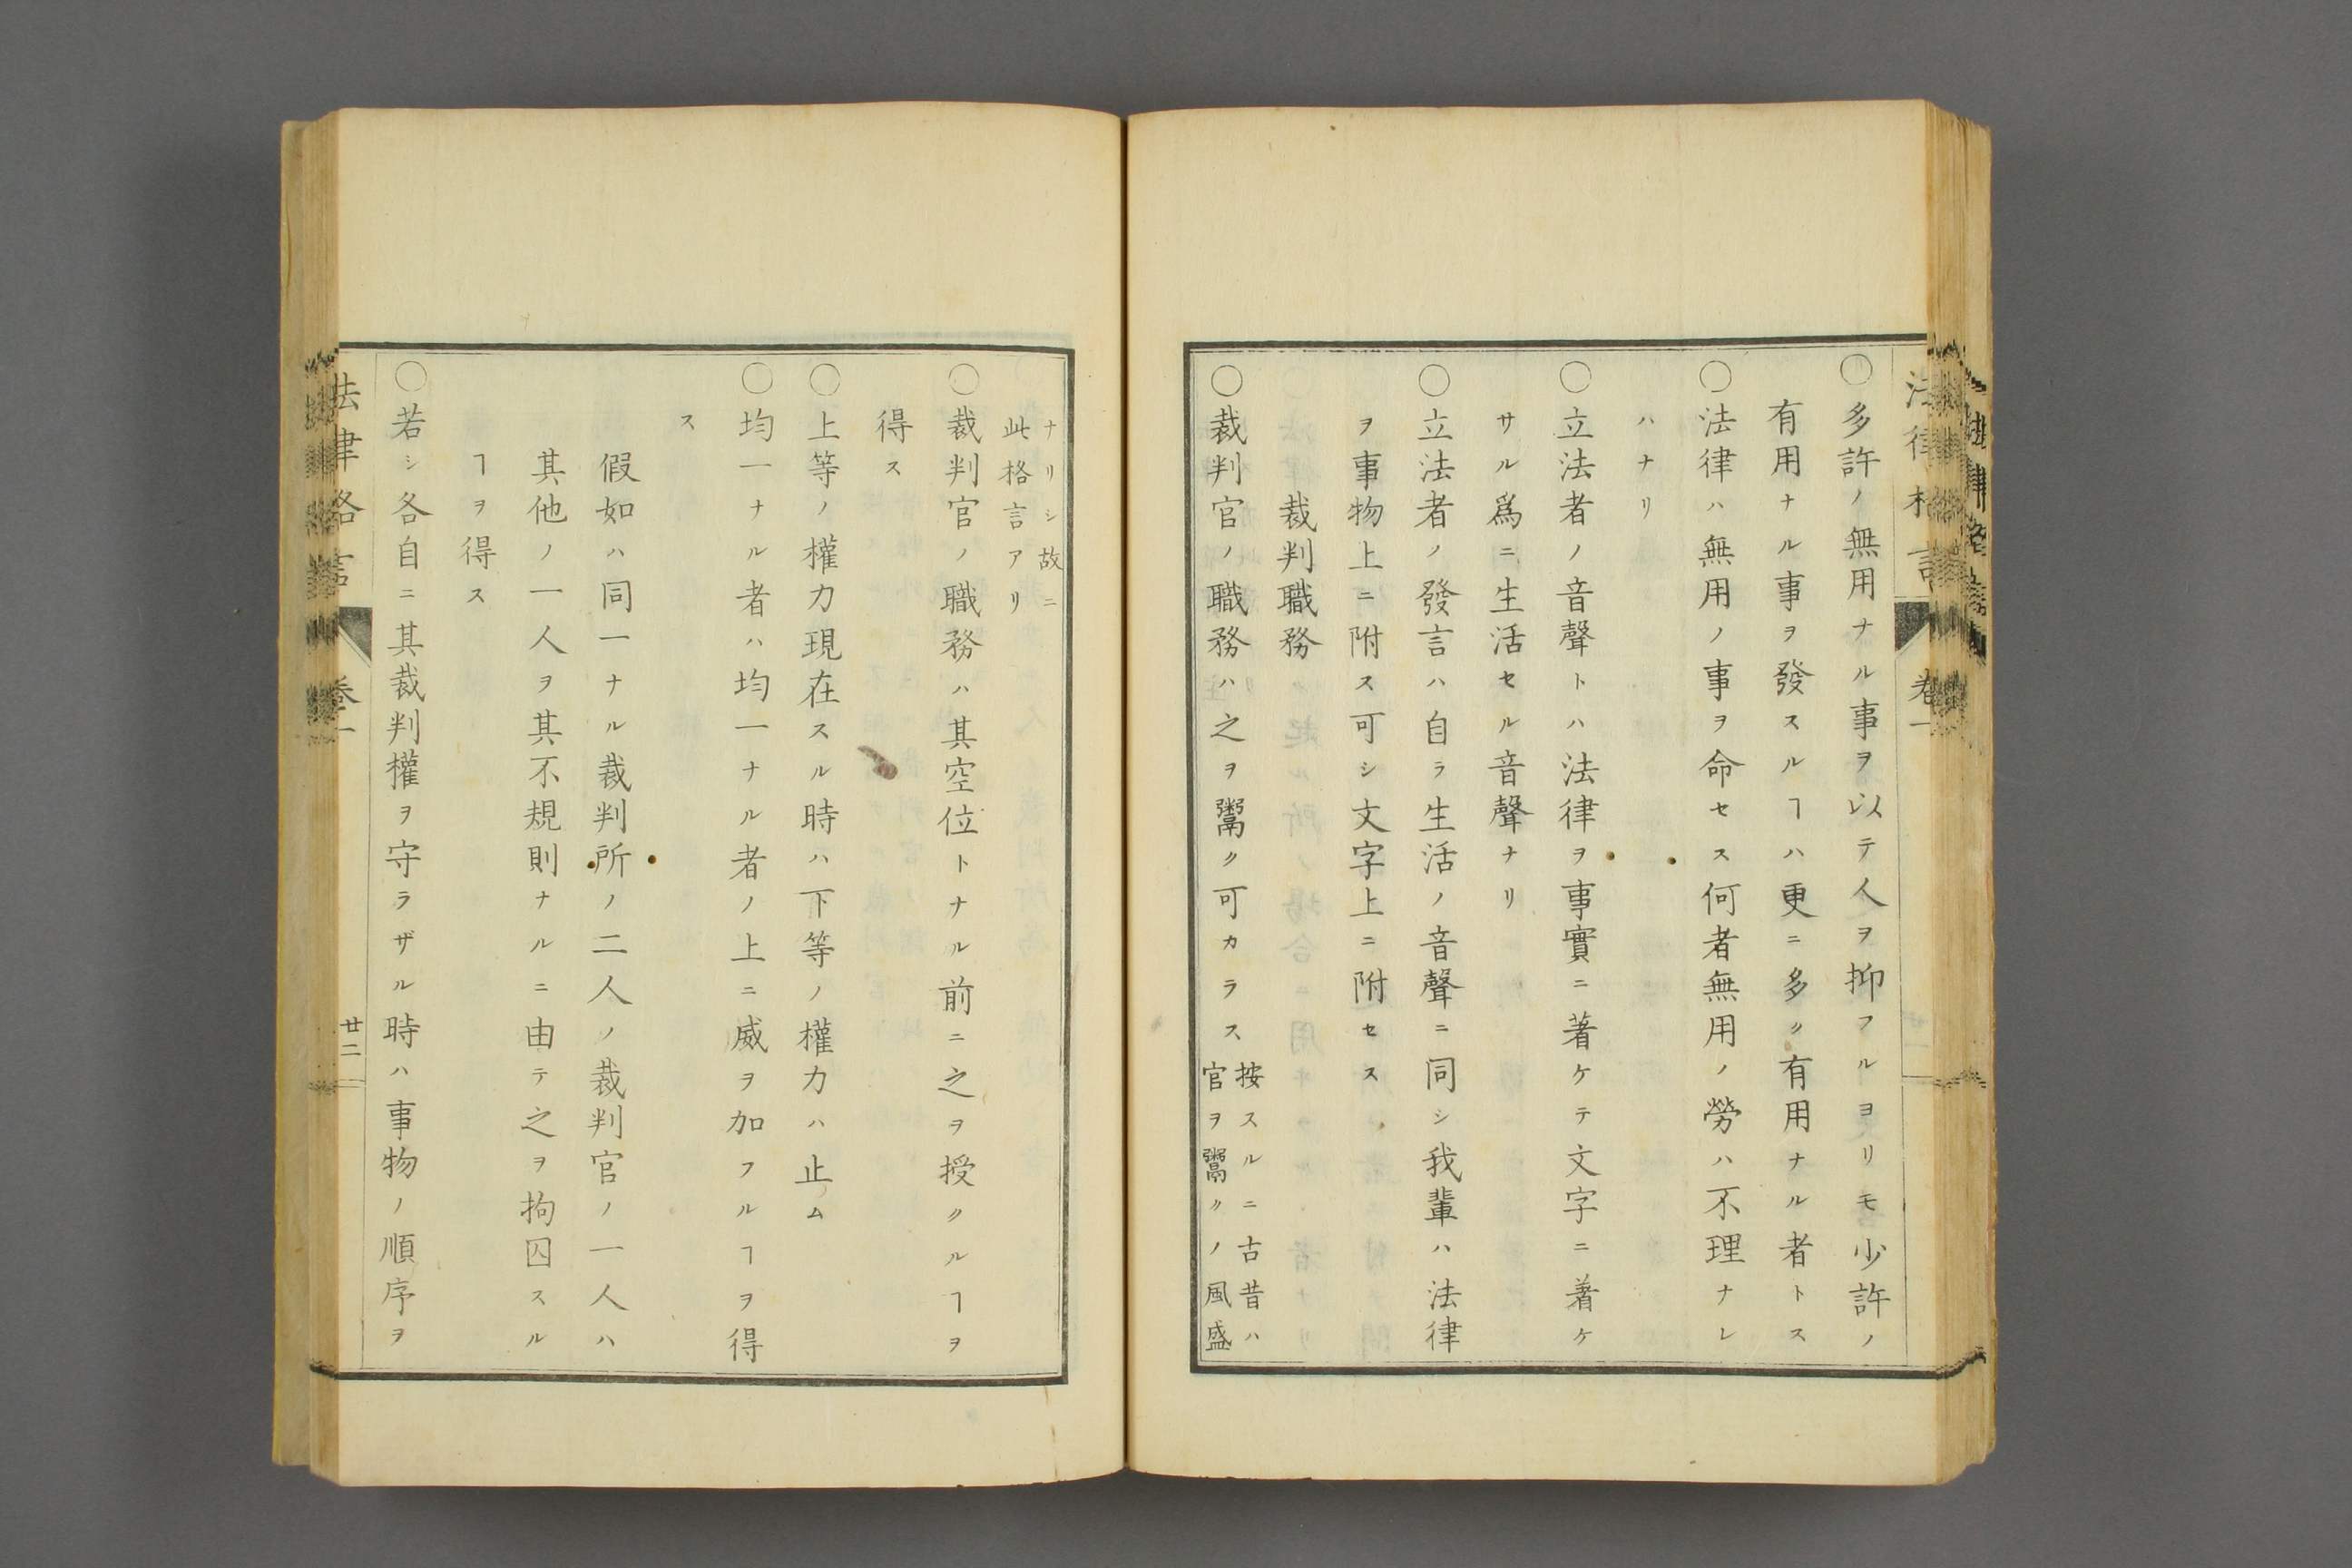 法律格言
卷一
〇多許ノ無用ナル事ヲ以テ人ヲ抑フルヨリモ少許ノ
有用ナル事ヲ發スルヿハ更ニ多ク有用ナル者トス
〇法律ハ無用ノ事ヲ命セス何者無用ノ勞ハ不理ナレ
ハナリ
〇立法者ノ音聲トハ法律ヲ事實ニ著ケテ文字ニ著ケ
サル爲ニ生活セル音聲ナリ
〇立法者ノ發言ハ自ラ生活ノ音聲ニ同シ我輩ハ法律
ヲ事物上ニ附ス可シ文字上ニ附セス
裁判職務
〇裁判官ノ職務ハ之ヲ鬻ク可カラス
按スルニ古昔ハ
官ヲ鬻クノ風盛
ナリシ故ニ
此格言アリ
〇裁判官ノ職務ハ其空位トナル前ニ之ヲ授クルヿヲ
得ス
〇上等ノ權力現在スル時ハ下等ノ權力ハ止ム
〇均一ナル者ハ均一ナル者ノ上ニ威ヲ加フルヿヲ得
ス
假如ハ同一ナル裁判所ノ二人ノ裁判官ノ一人ハ
其他ノ一人ヲ其不規則ナルニ由テ之ヲ拘囚スル
ヿヲ得ス
〇若シ各自ニ其裁判權ヲ守ラザル時ハ事物ノ順序ヲ
法律格言
卷一
廿二